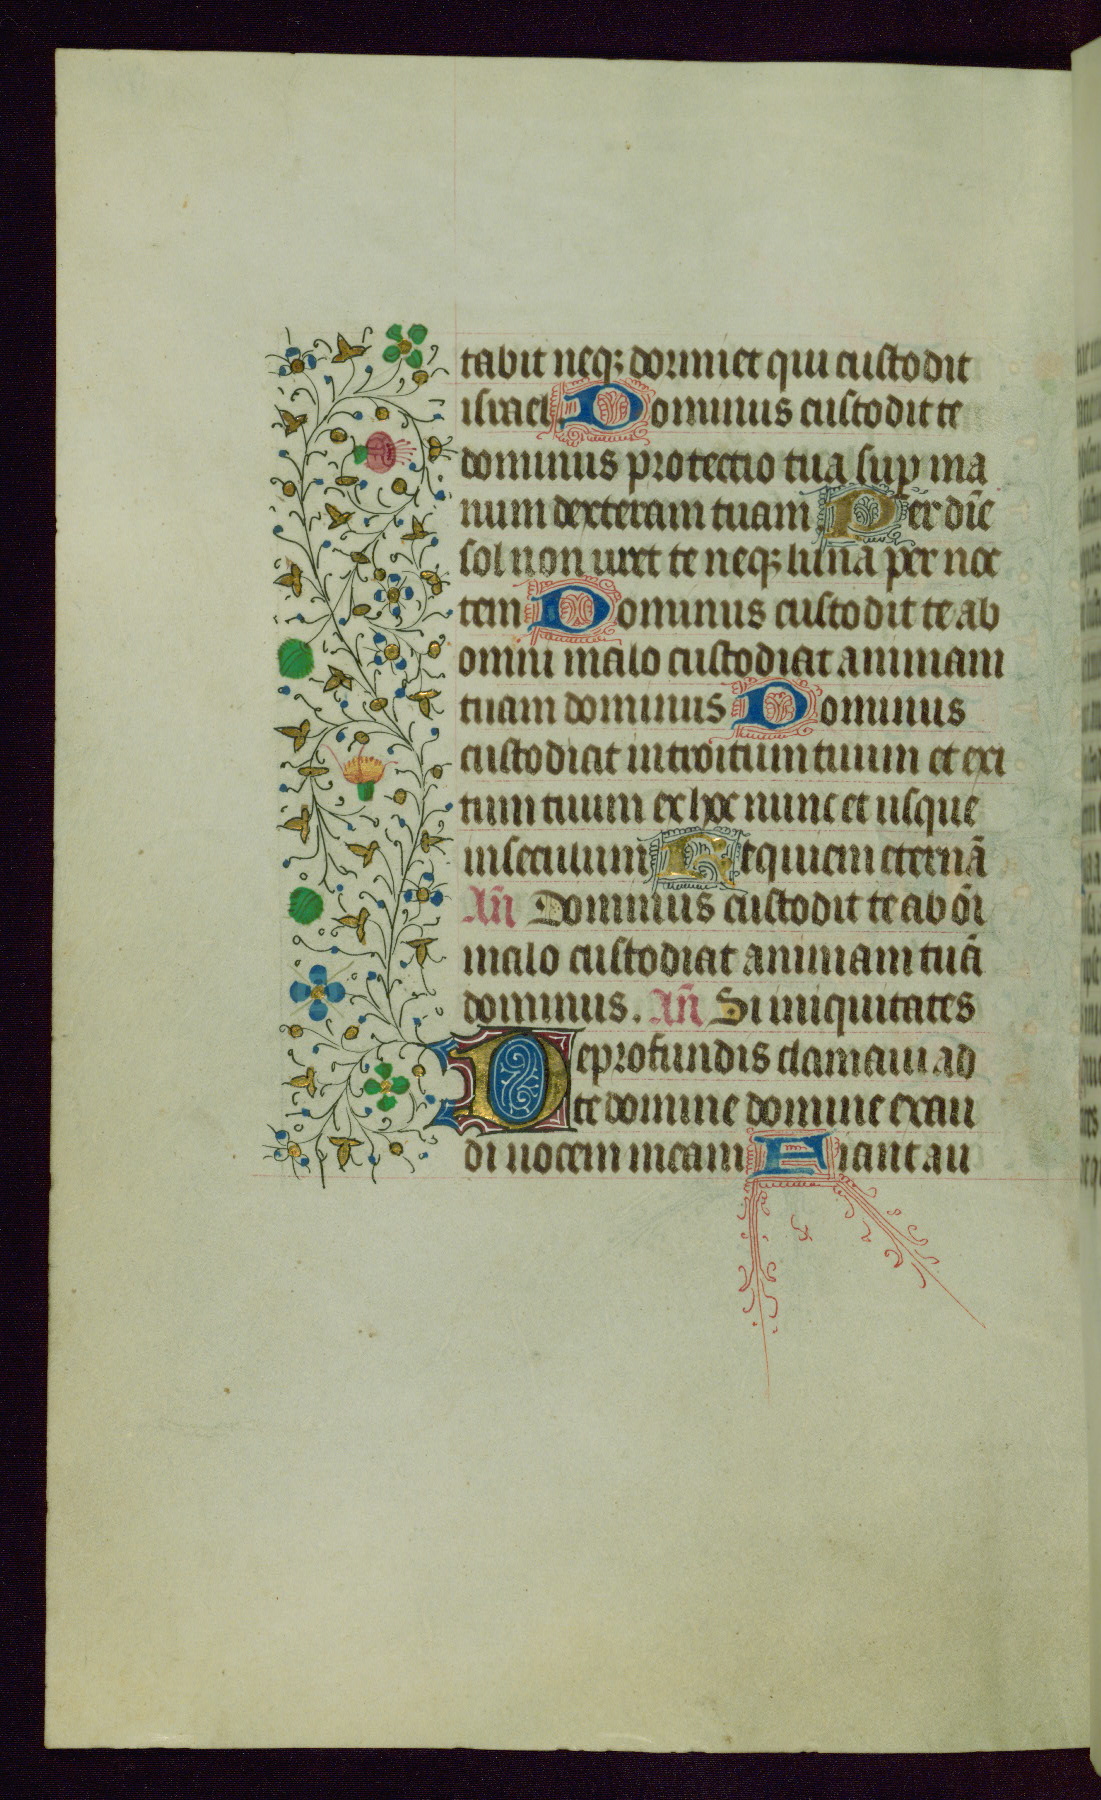 tabit neqꝫ dormiet qui custodit
israel Dominus custodit te
dominus protectio tua sup ma
num dexteram tuam Per diē
sol non uret te neqꝫ luna per noc
tem Dominus custodit te ab
omni malo custodiat animam
tuam dominus Dominus
custodiat introitum tuum et exi
tum tuum ex hoc nunc et usque
in seculum Requiem eternā
An̄ Dominus custodit te ab oī
malo custodiat animam tuā
dominus. An̄ Si iniquitates
De profundis clamaui ad
te domine domine exau
di uocem meam Fiant au